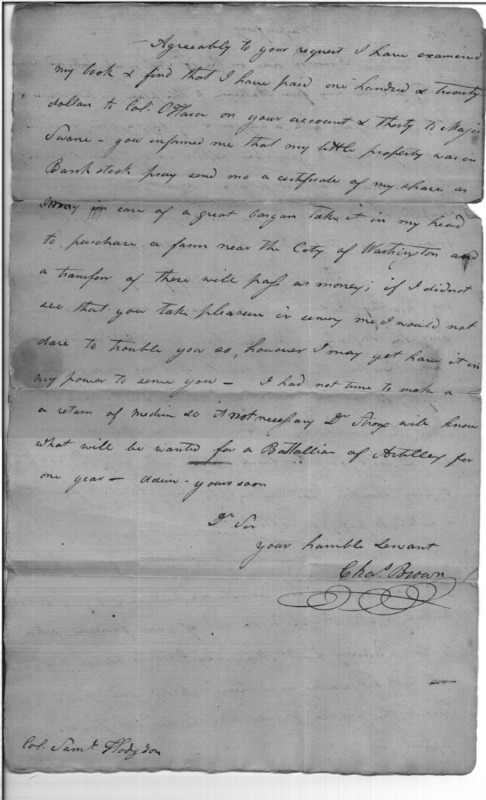 Agreeably to your request I have examined
my book & find that I have paid one hundred & twenty
dollars to Col. OHara on your account & thirty to Major
Swane - you informed me that my little property was in
Bank stock pray send me a certificate of my share as
I may in case of a great bargan take it in my head
to purchase a farm near the City of Washington and
a transfer of these will pass as money; if I did not
see that you take pleasure in serving me, I would not
dare to trouble you so, however I may yet have it in
my power to serve you - I had not time to make a
a return of medicin &c it not necessary Dr. will know
what will be wanted for a Battallian of Artillery for
one year - adieu - yours soon
Dr. Sir
your humble Servant
Chas. Brown
Col. Saml. Hodgdon